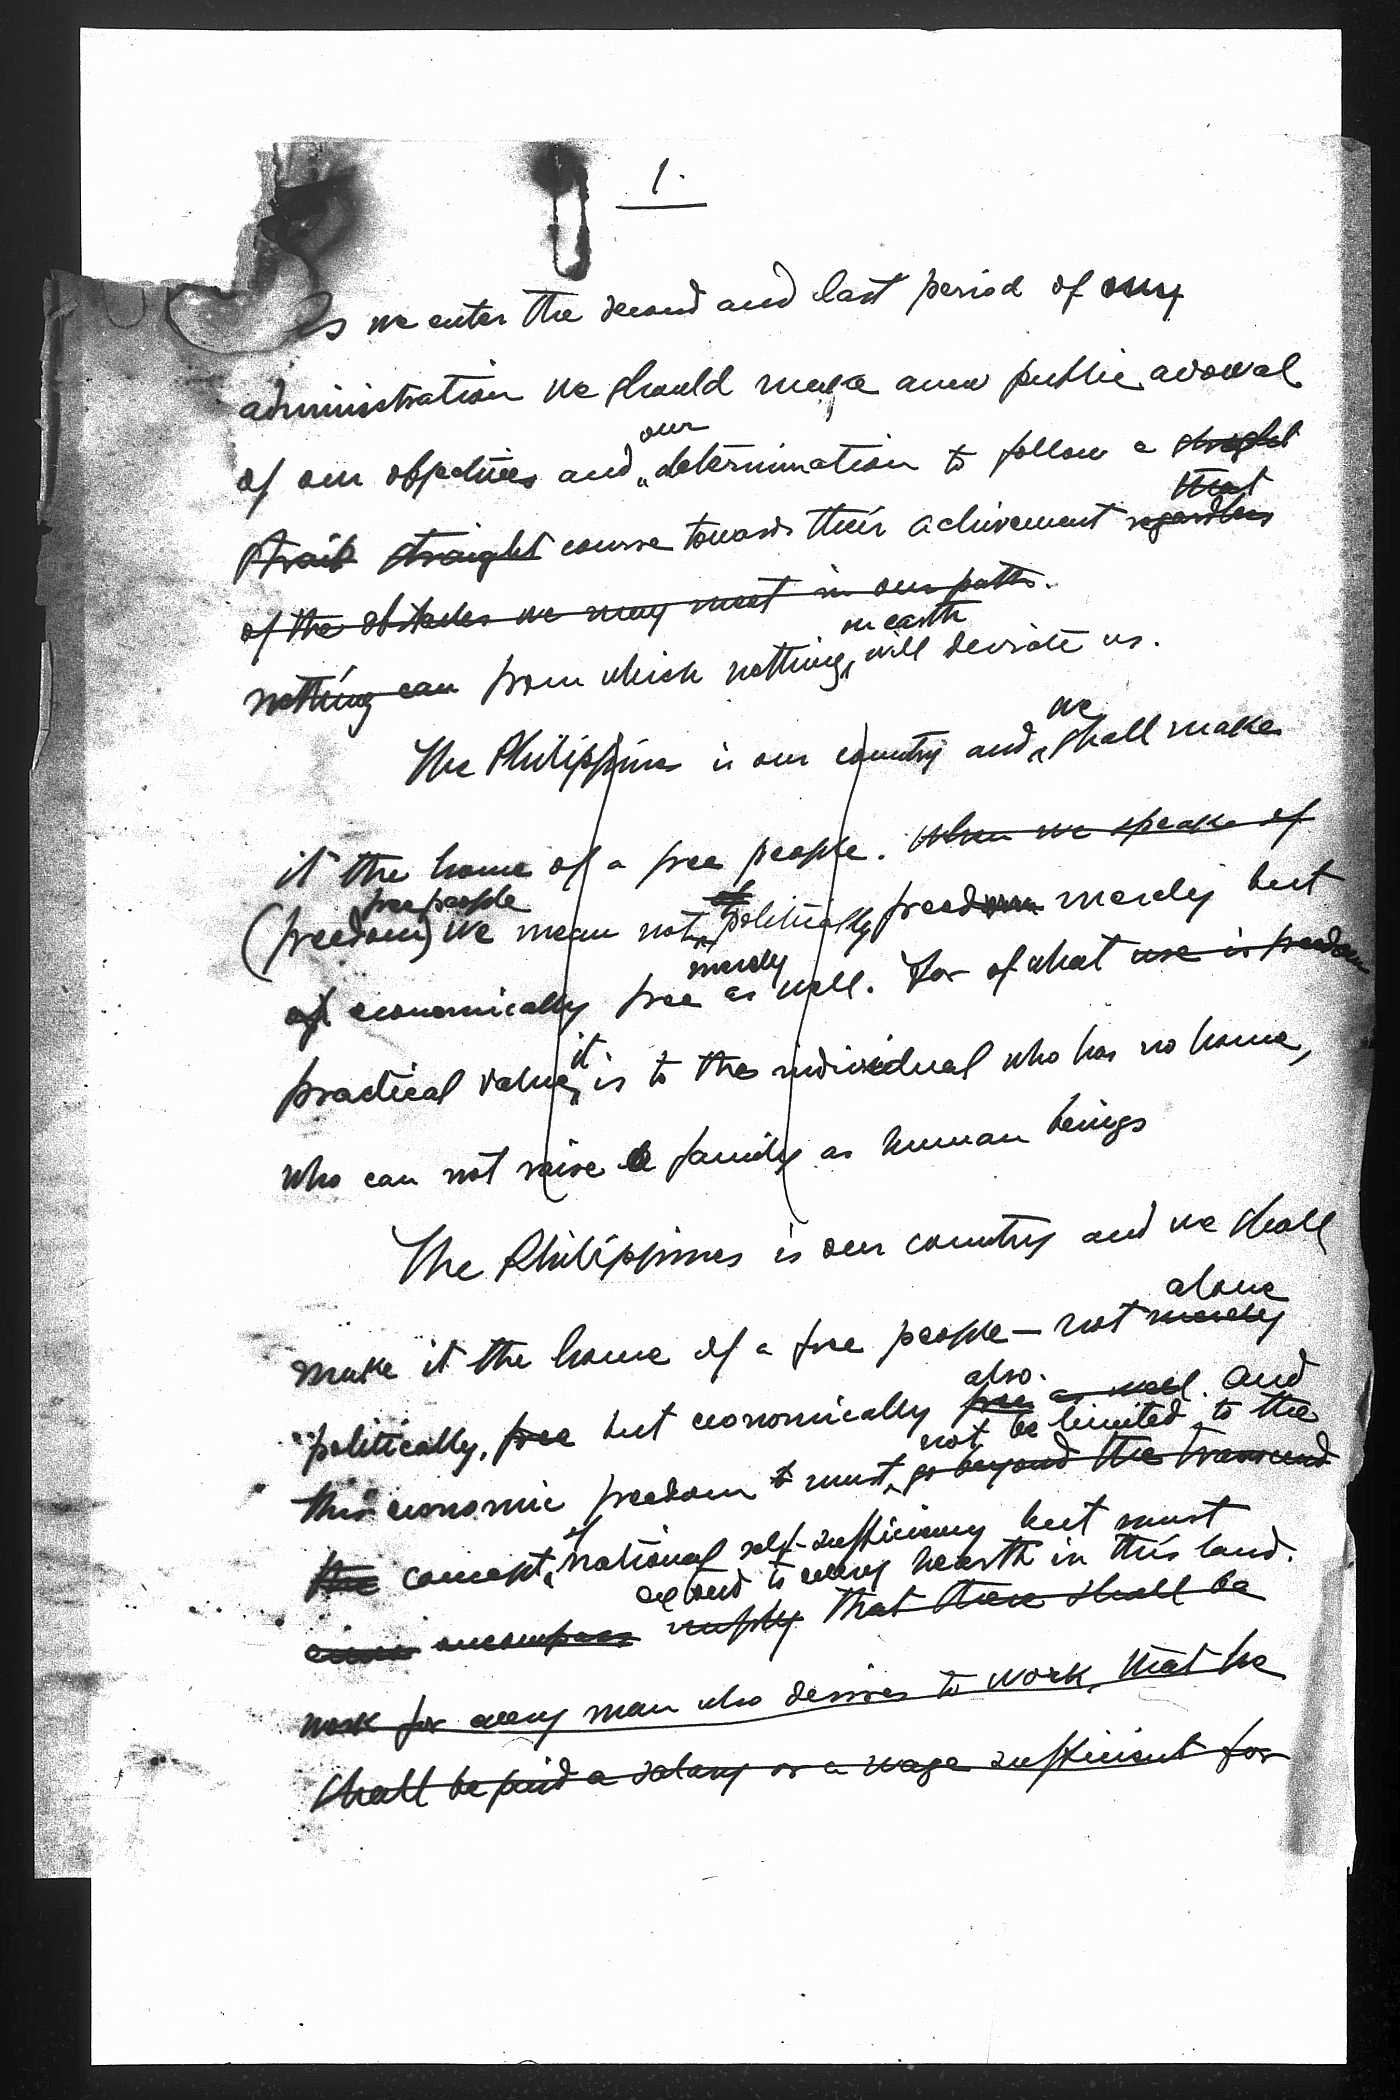 1.
As we enter the second and last period of my
administration we should make anew public avowal
our
of our objectives and determination to follow a straight
that
strait straight course towards their achievement regardless
of the obstacles we may meet in our path.
on earth
nothing can from which nothing will deviate us.
we
The Philippines is our country and shall make
it the home of a free people. When we speak of
free people
(freedom) we mean not politically freedom merely but
merely
of economically free as well. For of what use is freedom
it
practical value is to the individual who has no home,
who can not raise a family as human beings
The Philippines is our country and we shall
alone
make it the home of a free people — not merely
also.
politically, free but economically free as well. And
not be limited to the
this economic freedom must go beyond the transcend
of
the concept national self-sufficiency but must
extend to every hearth in this land.
encompass imply that there shall be
work for every man who desires to work, that he
shall be paid a salary or a wage sufficient for